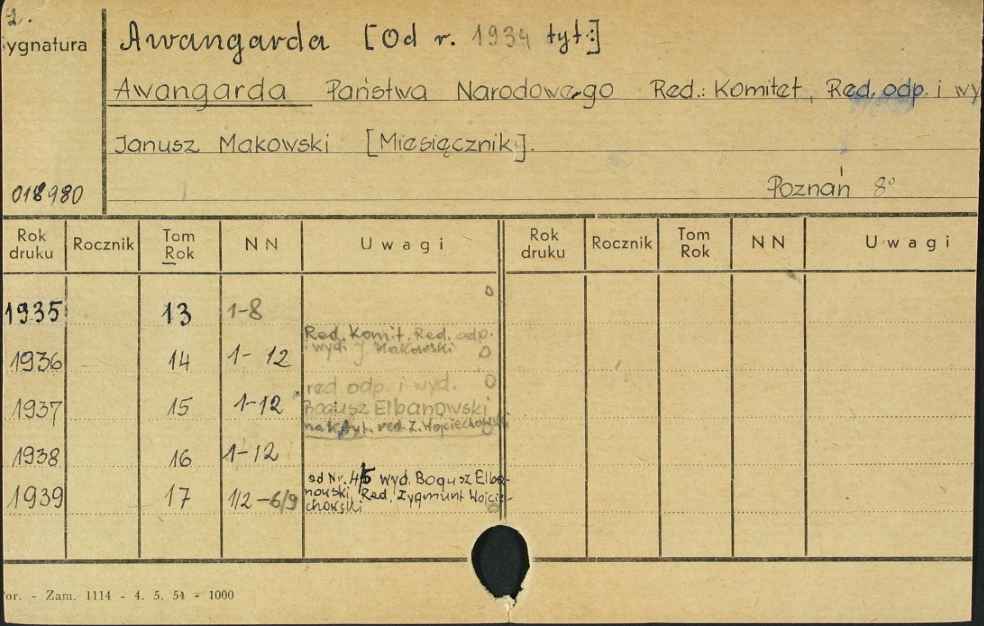 2.
ygnatura
Awangarda [Od r. 1934 tyt.:]
Awangarda Państwa Narodowego Red.: Komitet, Red. odp. i wy
Janusz Makowski [Miesięcznik].
018980
Poznań 8°
Rok druku Rocznik Tom Rok NN Uwagi Rok druku Rocznik Tom Rok NN Uwagi
1935 13 1-8
Red. Komit. Red. odp.
i wyd. J Makowski
1936 14 1-12
red odp. i wyd.
1937 15 1-12 Bogusz Elbanowski
red. Z. Wojciechowski
1938 16 1-12
od Nr. 4/5 wyd. Bogusz Elba-
nowski, Red. Zygmunt Wojcie-
1939 17 1/2-6/9 chowski
or. - Zam. 1114 - 4. 5. 54 - 1000